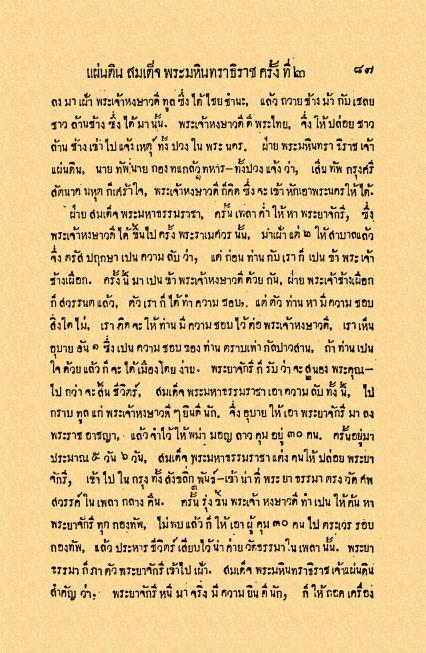 แผ่นดิน สมเด็จ พระมหินทราธิราช ครั้ง ที่ ๒ ๘๗
ลง มา เฝ้า พระเจ้าหงษาวดี ทูล ซึ่ง ได้ ไชย ชำนะ, แล้ว ถวาย ช้าง ม้า กับ เชลย
ชาว ล้านช้าง ซึ่ง ได้ มา นั้น. พระเจ้าหงษาวดี ดี พระไทย, จึ่ง ให้ ปล่อย ชาว
ล้าน ช้าง เข้า ไป แจ้ง เหตุ ทั้ง ปวง ใน พระ นคร. ฝ่าย พระมหินทรา ธิราช เจ้า
แผ่นดิน, นาย ทัพ นาย กอง ทแกล้ว ทหาร–ทั้งปวง แจ้ง ว่า, เสีย ทัพ กรุงศรี
สัตนาค นหุต ก็ เศร้า ใจ, พระเจ้าหงษาวดี ก็ คิด ซึ่ง จะ เข้า หักเอาพระนครให้ ได้.
ฝ่าย สมเด็จ พระมหาธรรมราชา, ครั้น เพลา ค่ำ ให้ หา พระยาจักรี, ซึ่ง
พระเจ้าหงษาวดี ได้ ขึ้นไป ครั้ง พระราเมศวร นั้น, มาเฝ้า แต่ ๒ ให้ สาบาลแล้ว
จึ่ง ตรัส ปฤกษา เปน ความ ลับ ว่า, แต่ ก่อน ท่าน กับ เรา ก็ เปน ข้า พระ เจ้า
ช้างเผือก. ครั้ง นี้ มา เปน ข้า พระเจ้าหงษาวดี ด้วย กัน, ฝ่าย พระเจ้าช้างเผือก
ก็ สวรรนคต แล้ว, ตัว เรา ก็ ได้ ทำ ความ ชอบ, แต่ ตัว ท่าน หา มี ความ ชอบ
สิ่งใด ไม่, เรา คิด จะ ให้ ท่าน มี ความ ชอบ ไว้ ต่อ พระเจ้าหงษาวดี, เรา เห็น
อุบาย อัน ๑ ซึ่ง เปน ความ ชอบ ของ ท่าน ตราบเท่า กัลปาวสาน, ถ้า ท่าน เปน
ใจ ด้วย แล้ว ก็ จะ ได้เมือง โดย ง่าย. พระยาจักรี ก็ รับ ว่า จะ สนอง พระคุณ–
ไป กว่า จะ สิ้น ชีวิตร์, สมเด็จ พระมหาธรรมราชา เอา ความ ลับ ทั้ง นี้, ไป
กราบ ทูล แก่ พระเจ้าหงษาวดี ๆ ยินดี นัก. จึ่ง อุบาย ให้ เอา พระยาจักรี มา ลง
พระราช อาชญา, แล้ว จำไว้ ให้ พม่า มอญ ลาว คุม อยู่ ๓๐ คน. ครั้นอยู่มา
ประมาณ ๕ วัน ๖ วัน, สมเด็จ พระมหาธรรมราชา แต่ง คนให้ ปล่อย พระยา
จักรี, เข้า ไป ใน กรุง ทั้ง สังขลิก พันธ์–เข้า น่า ที่ พระ ยา ธรรมา ตรง วัด ศพ
สวรรค์ ใน เพลา กลาง คืน. ครั้น รุ่ง ขึ้น พระเจ้า หงษาวดี ทำ เปน ให้ ค้น หา
พระยาจักรี ทุก กองทัพ, ไม่พบ แล้ว ก็ ให้ เอา ผู้ คุม ๓๐ คน ไป ตระเวร รอบ
กองทัพ, แล้ว ประหาร ชีวิตร์ เสียบไว้ น่า ค่าย วัดธรรมา ใน เพลา นั้น. พระยา
ธรรมา ก็ ภา ตัว พระยาจักรี เข้าไป เฝ้า. สมเด็จ พระมหินทราธิราช เจ้าแผ่นดิน
สำคัญ ว่า, พระยาจักรี หนี มา จริง มี ความ ยิน ดี นัก, ก็ ให้ ถอด เครื่อง